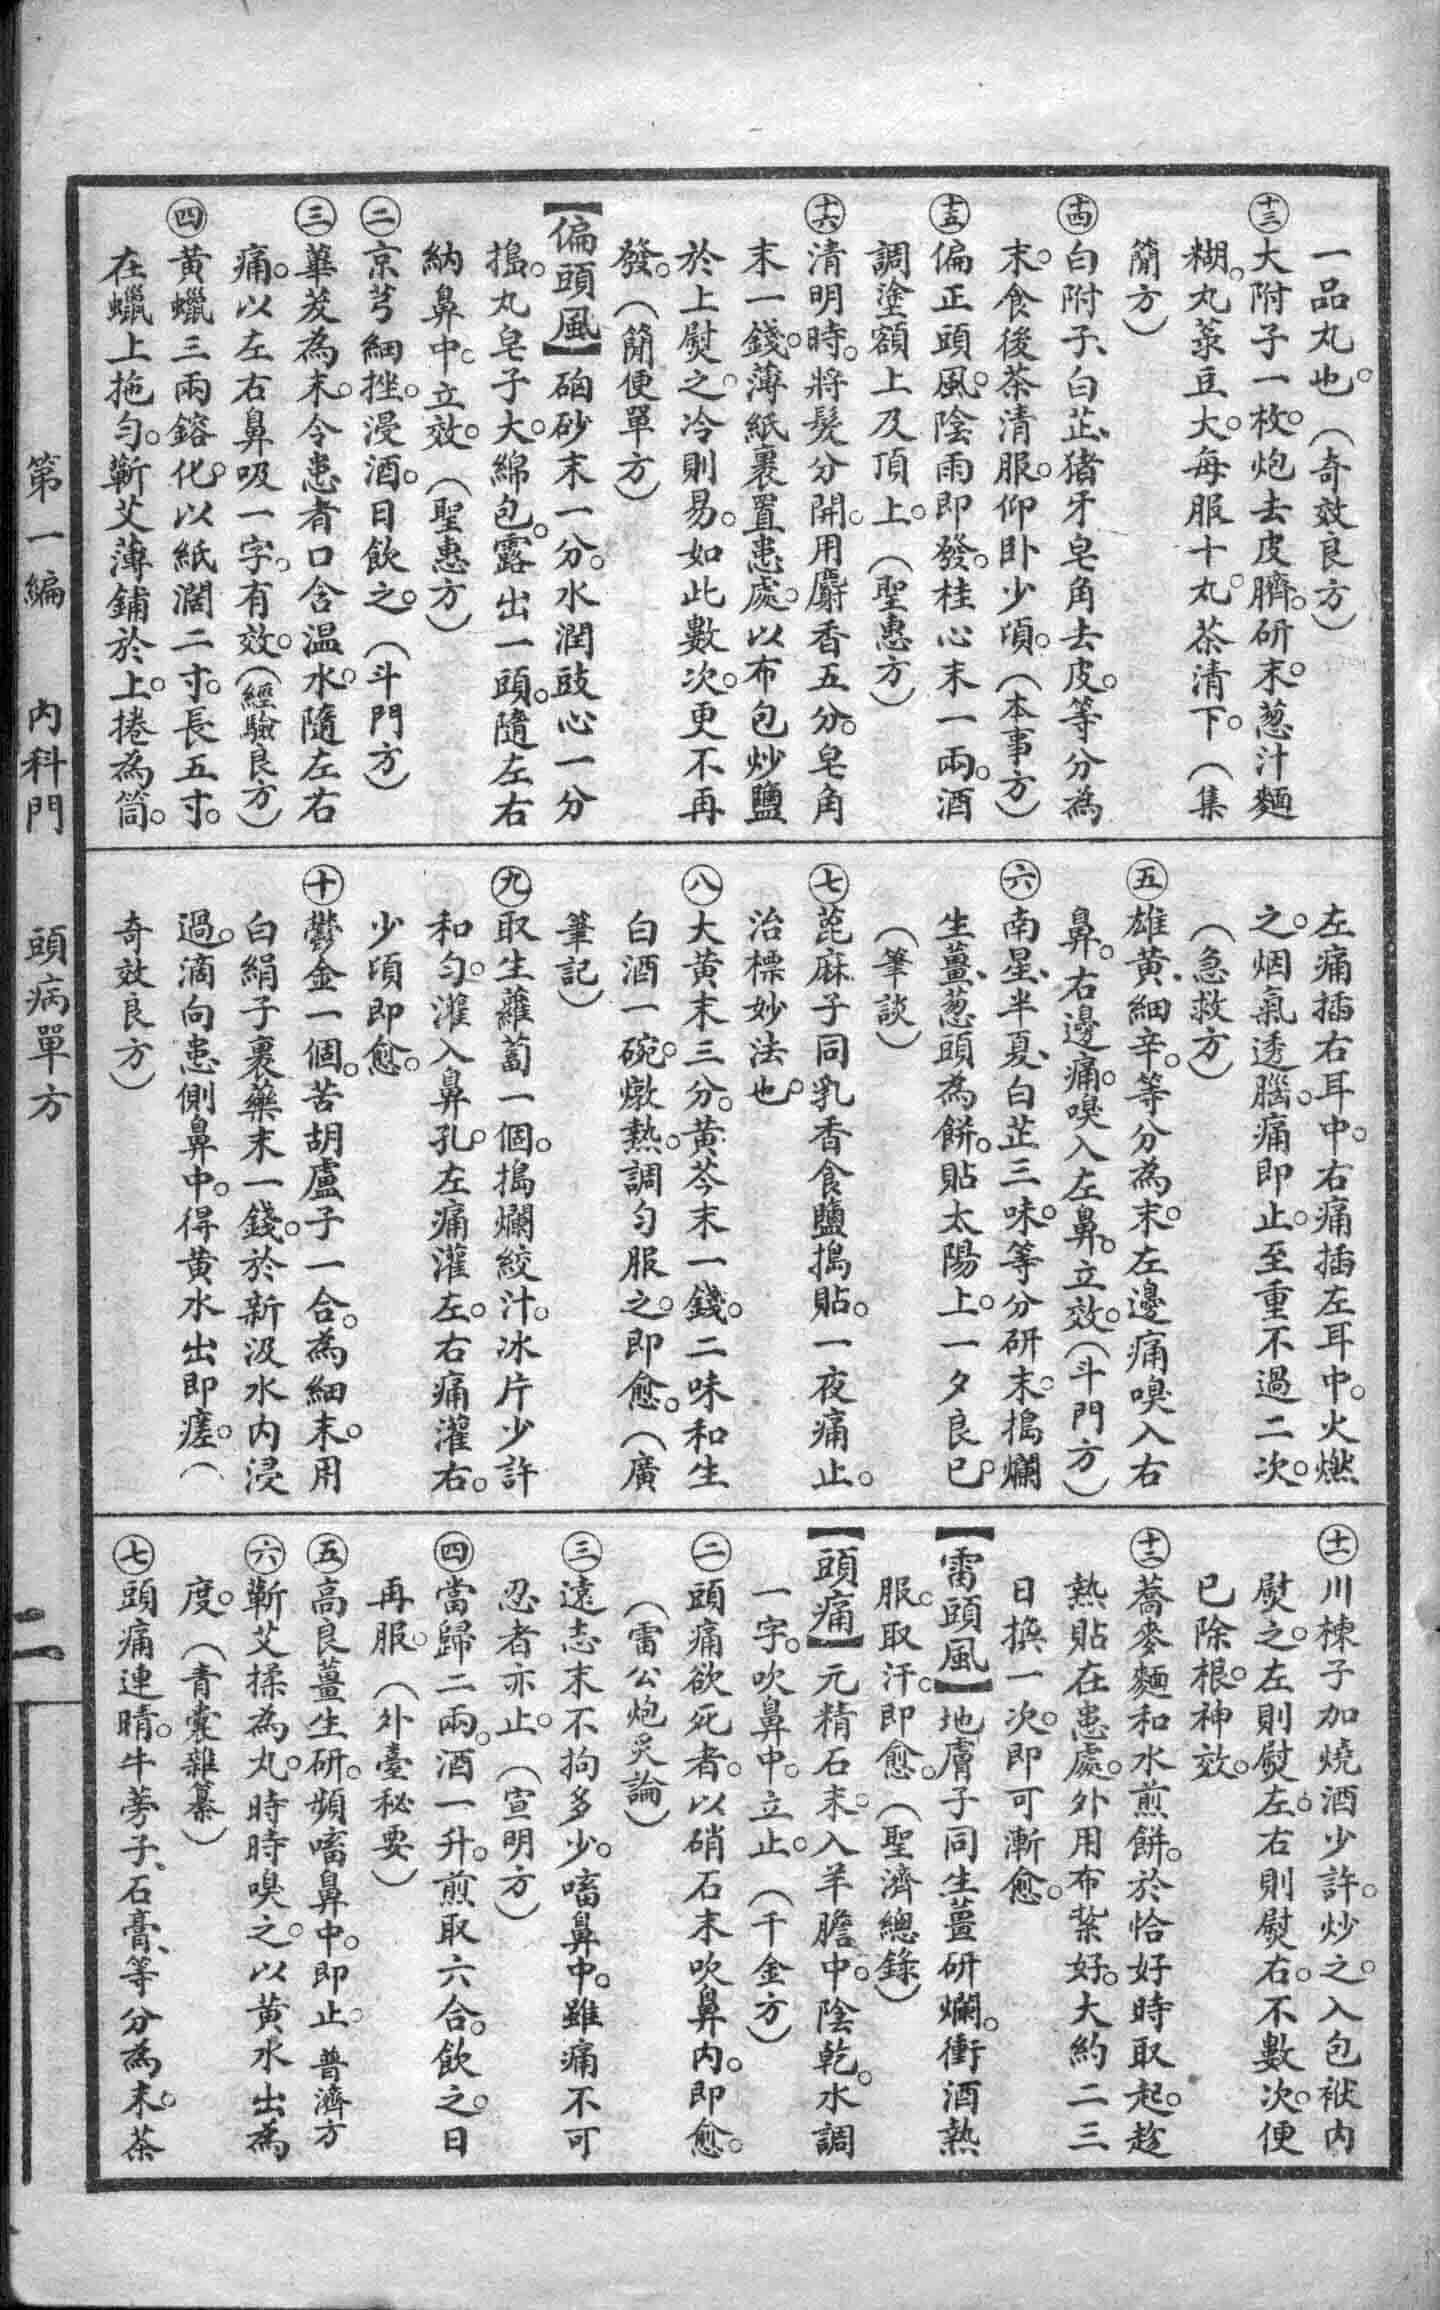 一品丸也。（奇效良方）
㊉三大附子一枚。炮去皮臍。研末。葱汁麵
糊。丸菉豆大。每服十丸。茶清下。（集
簡方）
㊉四白附子、白芷、猪牙皂角去皮。等分為
末。食後茶清服。仰卧少頃。（本事方）
㊉五偏正頭風。陰雨即發。桂心末一兩。酒
調塗額上及頂上。（聖惠方）
㊉六清明時。將髮分開。用麝香五分。皂角
末一錢。薄紙裹置患處。以布包炒鹽
於上熨之。冷則易。如此數次。更不再
發。（簡便單方）
【偏頭風】硇砂末一分。水潤豉心一分
搗。丸皂子大。綿包。露出一頭。隨左右
納鼻中。立效。（聖惠方）
㊁京芎細挫。浸酒。日飲之。（斗門方）
㊂蓽茇為末。令患者口含温水。隨左右
痛。以左右鼻吸一字。有效。（經驗良方）
㊃黃蠟三兩鎔化。以紙濶二寸。長五寸。
在蠟上拖勻。蘄艾薄鋪於上。捲為筒。
左痛插右耳中。右痛插左耳中。火燃
之。烟氣透腦。痛即止。至重不過二次。
（急救方）
㊄雄黃、細辛。等分為末。左邊痛嗅入右
鼻。右邊痛。嗅入左鼻。立效。（斗門方）
㊅南星、半夏、白芷三味。等分研末。搗爛
生薑、葱頭為餅。貼太陽上。一夕良已。
（筆談）
㊆蓖麻子同乳香食鹽搗貼。一夜痛止。
治標妙法也。
㊇大黄末三分。黄芩末一錢。二味和生
白酒一碗。燉熱。調勻服之。即愈。（廣
筆記）
㊈取生蘿蔔一個。搗爛絞汁。冰片少許
和勻。灌入鼻孔。左痛灌左。右痛灌右。
少頃即愈。
㊉鬱金一個。苦胡盧子一合。為細末。用
白絹子裹藥末一錢。於新汲水内浸
過。滴向患側鼻中。得黄水出即瘥。（
奇效良方）
㊉一川楝子加燒酒少許。炒之。入包袱内
熨之。左則熨左。右則熨右。不數次。便
已除根。神效。
㊉二蕎麥麵和水煎餅。於恰好時取起。趁
熱貼在患處。外用布紮好。大約二三
日換一次。即可漸愈。
【雷頭風】地膚子同生薑研爛。衝酒熱
服。取汗。即愈。（聖濟總錄）
【頭痛】元精石末。入羊膽中。陰乾。水調
一字。吹鼻中。立止。（千金方）
㊁頭痛欲死者。以硝石末吹鼻内。即愈。
（雷公炮炙論）
㊂遠志末不拘多少。㗜鼻中。雖痛不可
忍者亦止。（宣明方）
㊃當歸二兩。酒一升。煎取六合。飲之。日
再服。（外臺秘要）
㊄高良薑生研。頻㗜鼻中。即止。普濟方
㊅蘄艾揉為丸。時時嗅之。以黄水出為
度。（青囊雜纂）
㊆頭痛連睛。牛蒡子、石膏、等分為末。茶
第一編　内科門　頭病單方
二